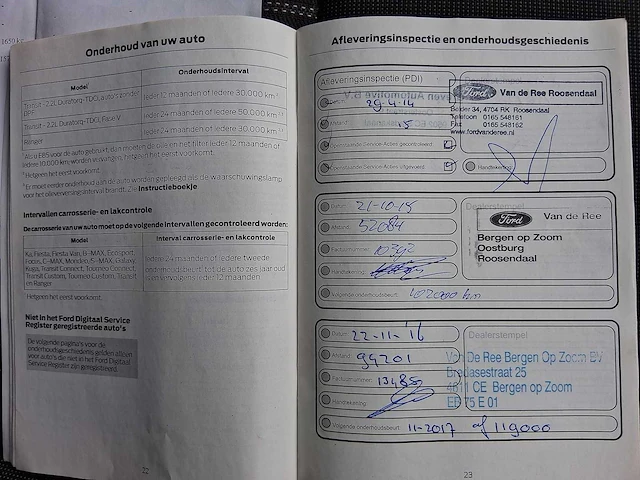 Onderhoud van uw auto
Model
Onderhoudsinterval
Transit - 2.2L Duratorq-TDCi, auto's zonder DPF
Ieder 12 maanden of iedere 30.000 km
Transit - 2.2L Duratorq-TDCi, Fase V
Ieder 24 maanden of iedere 50.000 km
Ranger
Ieder 24 maanden of iedere 30.000 km
Als u E85 voor de auto gebruikt, dan moeten de olie en het filter ieder 12 maanden of
iedere 10.000 km worden vervangen, hetgeen het eerst voorkomt.
Hetgeen het eerst voorkomt.
Er moet eerder onderhoud aan de auto worden gepleegd als de waarschuwingslamp
voor het olieverversingsinterval brandt. Zie Instructieboekje
Intervallen carrosserie- en lakcontrole
De carrosserie van uw auto moet op de volgende intervallen gecontroleerd worden:
Model
Interval carrosserie- en lakcontrole
Ka, Fiesta, Fiesta Van, B-MAX, Ecosport,
Focus, C-MAX, Mondeo, S-MAX, Galaxy,
Kuga, Transit Connect, Tourneo Connect,
Transit Custom, Tourneo Custom, Transit
en Ranger
Iedere 24 maanden of iedere tweede
onderhoudsbeurt tot de auto zes jaar oud
is, vervolgens ieder 12 maanden.
Hetgeen het eerst voorkomt.
Niet in het Ford Digitaal Service
Register geregistreerde auto's
De volgende pagina's voor de
onderhoudsgeschiedenis gelden alleen
voor auto's die niet in het Ford Digitaal
Service Register zijn geregistreerd.
22
Afleveringsinspectie en onderhoudsgeschiedenis
Afleveringsinspectie (PDI)
29-4-14
Afstand:
5
Openstaande Service-Acties gecontroleerd
Openstaande Service-Acties uitgevoerd
Handtekening:
Ford Van de Ree Roosendaal
Belder 34, 4704 RK Roosendaal
Telefoon 0165 548161
Fax 0165 548162
www.fordvanderee.nl
Datum: 21-10-15
Afstand: 52084
Factuurnummer: 10392
Handtekening:
Volgende onderhoudsbeurt: 102000 km
Dealerstempel
Ford Van de Ree
Bergen op Zoom
Oostburg
Roosendaal
Datum: 22-11-'16
Afstand: 94201
Factuurnummer: 13485
Handtekening:
Volgende onderhoudsbeurt: 11-2017 of 119000
Dealerstempel
Van De Ree Bergen Op Zoom BV
Bredasestraat 25
4611 CE Bergen op Zoom
EB 75 E 01
23